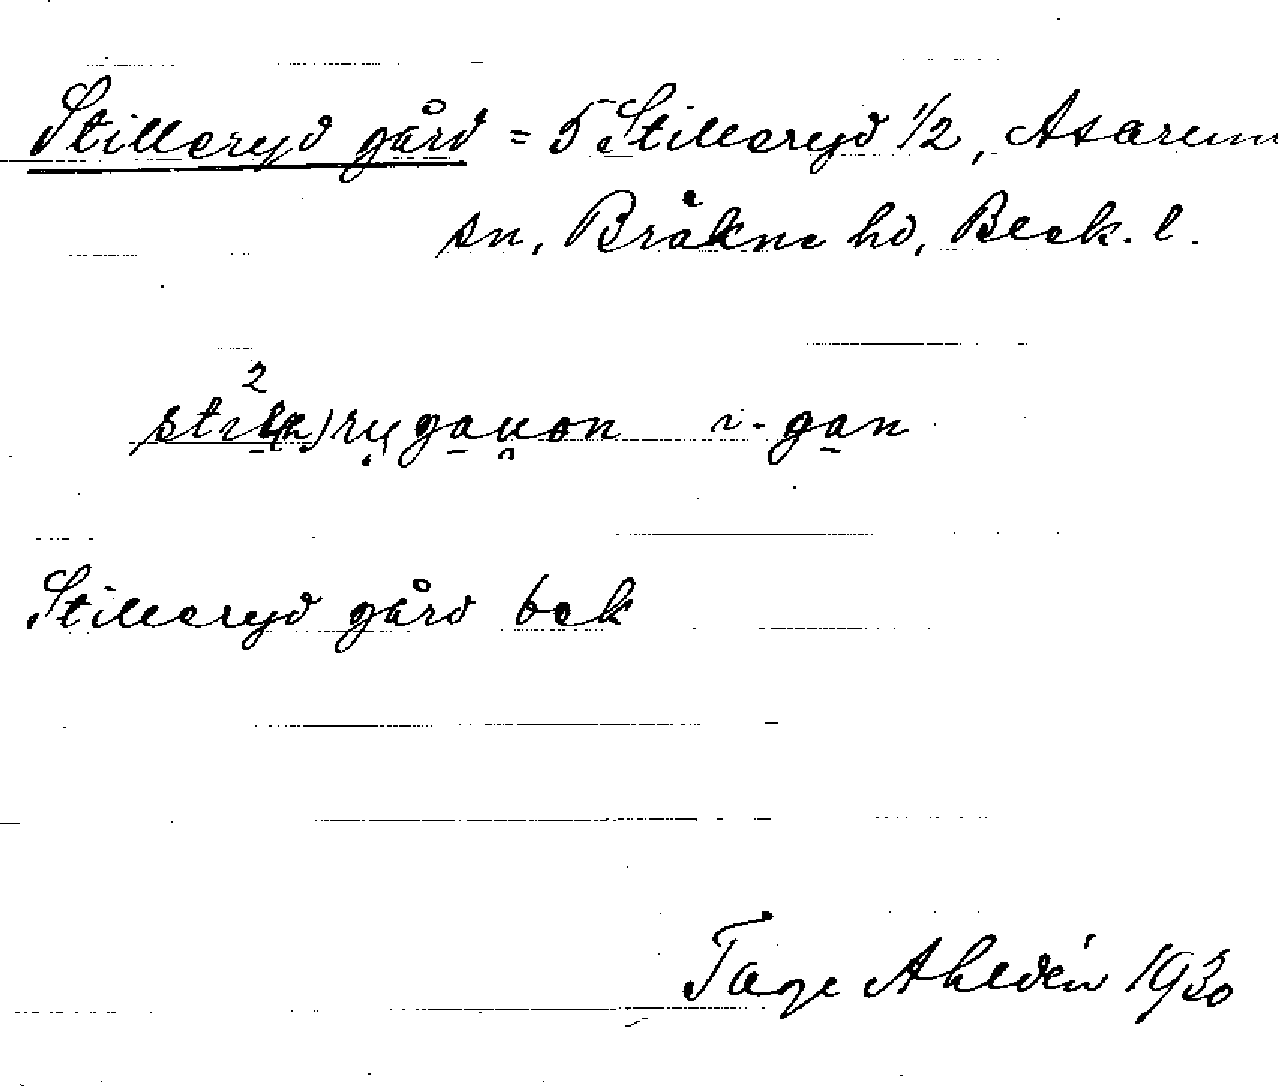 Stilleryd gård = 5 Stilleryd 1/2, Asarum
sn, Bräkne hd, Blek. l.
i-gan
Stilleryd gård bek
Tage Ahldén 1930